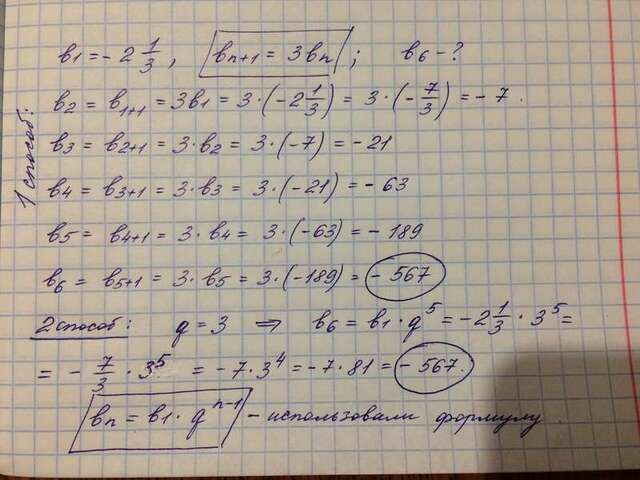 1 способ:
b₁ = -2 1/3, b_{n+1} = 3b_n; b₆ - ?
b₂ = b_{1+1} = 3b₁ = 3·(-2 1/3) = 3·(-7/3) = -7.
b₃ = b_{2+1} = 3·b₂ = 3·(-7) = -21
b₄ = b_{3+1} = 3·b₃ = 3·(-21) = -63
b₅ = b_{4+1} = 3·b₄ = 3·(-63) = -189
b₆ = b_{5+1} = 3·b₅ = 3·(-189) = -567
2 способ: q = 3 ⇒ b₆ = b₁·q⁵ = -2 1/3 · 3⁵ =
= -7/3 · 3⁵ = -7·3⁴ = -7·81 = -567.
b_n = b₁·q^{n-1} - использовали формулу